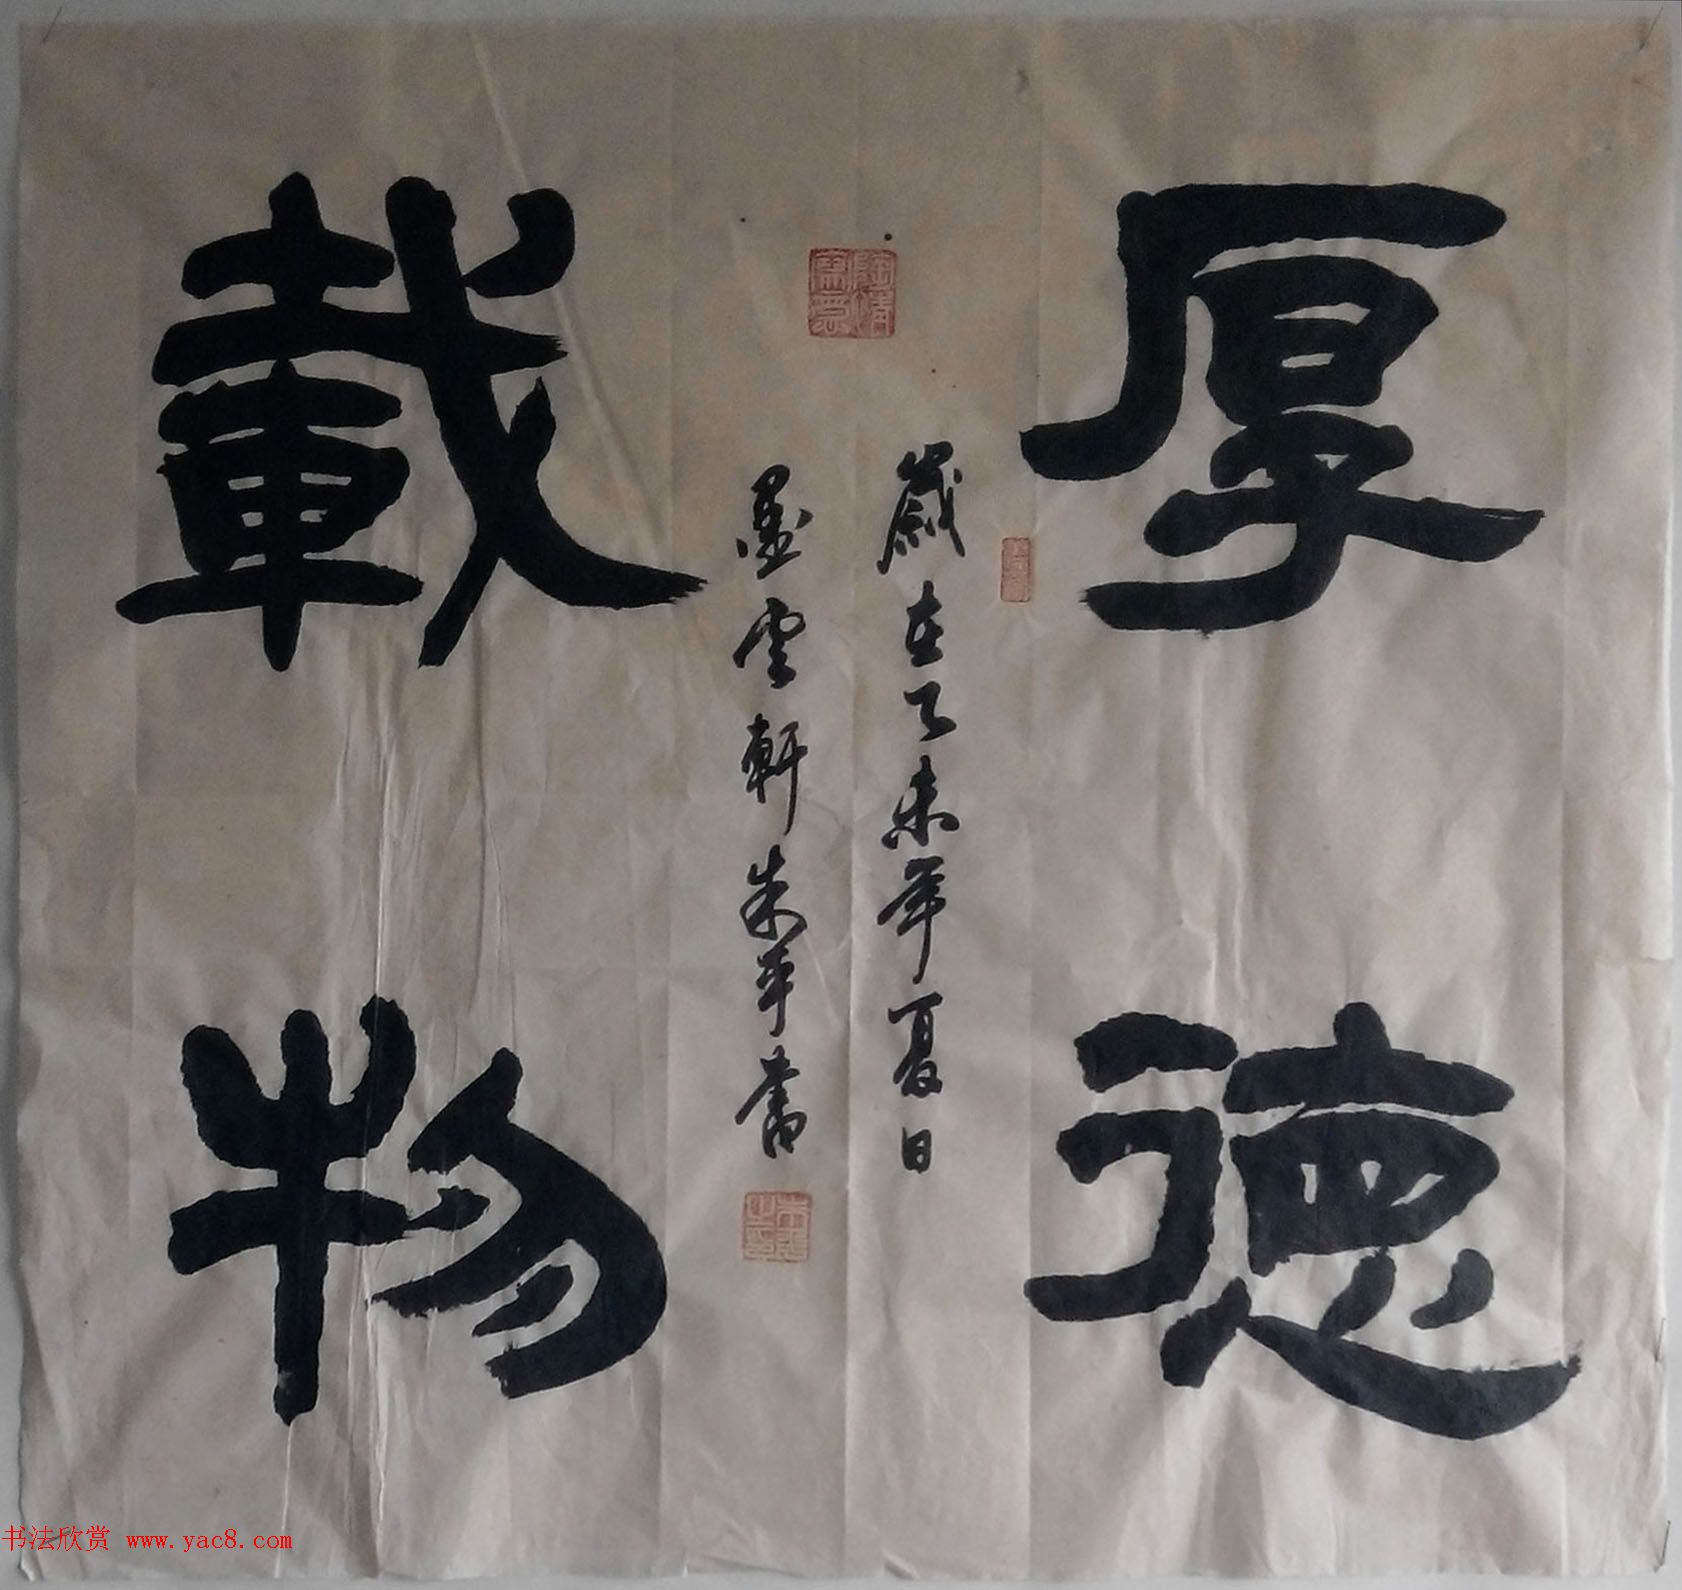 厚德
載物
歲在乙未年夏日
墨雲軒朱平書
书法欣赏 www.yac8.com